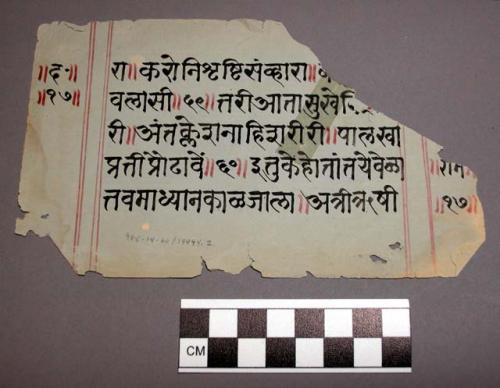 ॥द॰॥
॥१७॥
रा॥करोनिश्रृष्टिसंव्हारा॥
वलासी॥५९॥तरीआतासुखे
री॥अंतक्लेशनाहिशरीरी॥पालखा
प्रत्तीप्रोढावें॥६०॥इतुकेहोतांतयेवेळा
त्तवमाध्यानकाळजाला॥अत्रीऋषी
॥राम
॥१७॥
CM